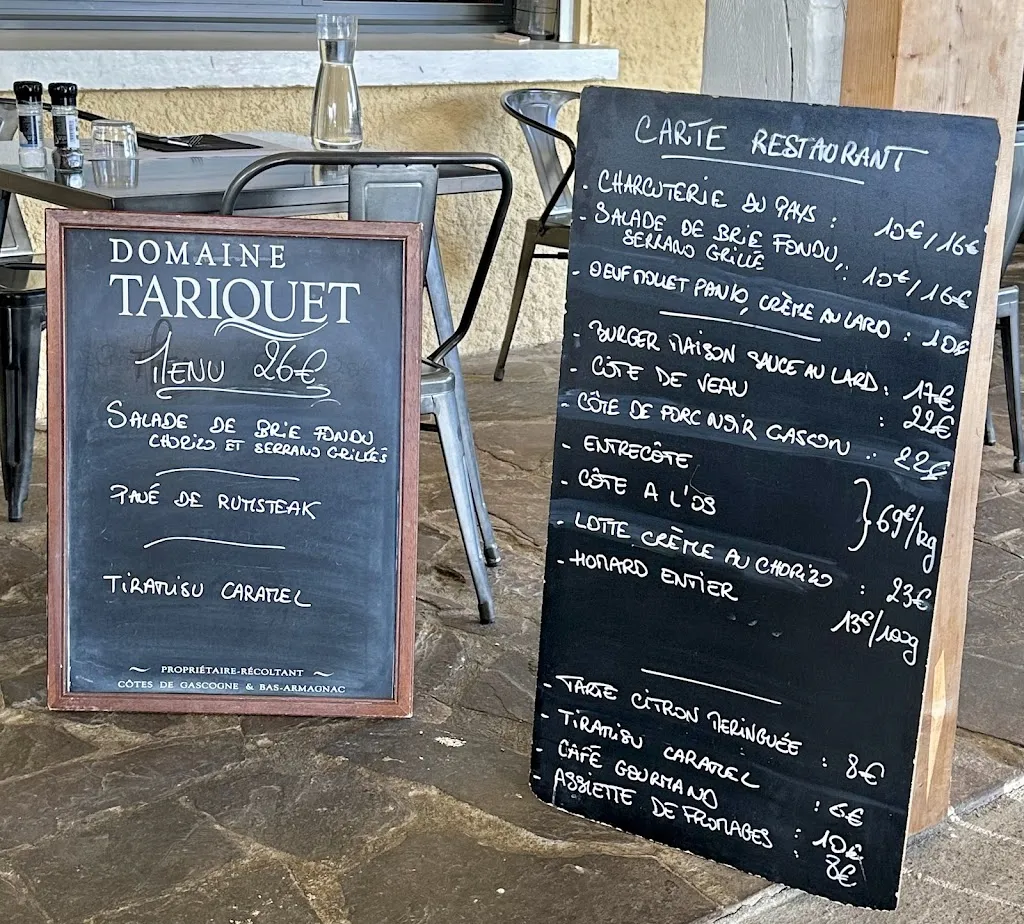 DOMAINE
TARIQUET
MENU 26€
SALADE DE BRIE FONDU
CHORIZO ET SERRANO GRILLÉS
PAVÉ DE RUMSTEAK
TIRAMISU CARAMEL
~ PROPRIÉTAIRE-RÉCOLTANT ~
CÔTES DE GASCOGNE & BAS-ARMAGNAC
CARTE RESTAURANT
- CHARCUTERIE DU PAYS : 10€/16€
- SALADE DE BRIE FONDU,
SERRANO GRILLÉ : 10€/16€
- OEUF MOLLET PANKO, CRÈME AU LARD : 10€
- BURGER MAISON SAUCE AU LARD : 17€
- CÔTE DE VEAU : 22€
- CÔTE DE PORC NOIR GASCON : 22€
- ENTRECÔTE
- CÔTE A L'OS } 69€/kg
- LOTTE CRÈME AU CHORIZO : 23€
- HOMARD ENTIER 13€/100g
- TARTE CITRON MERINGUÉE : 8€
- TIRAMISU CARAMEL : 6€
- CAFÉ GOURMAND : 10€
- ASSIETTE DE FROMAGES : 8€